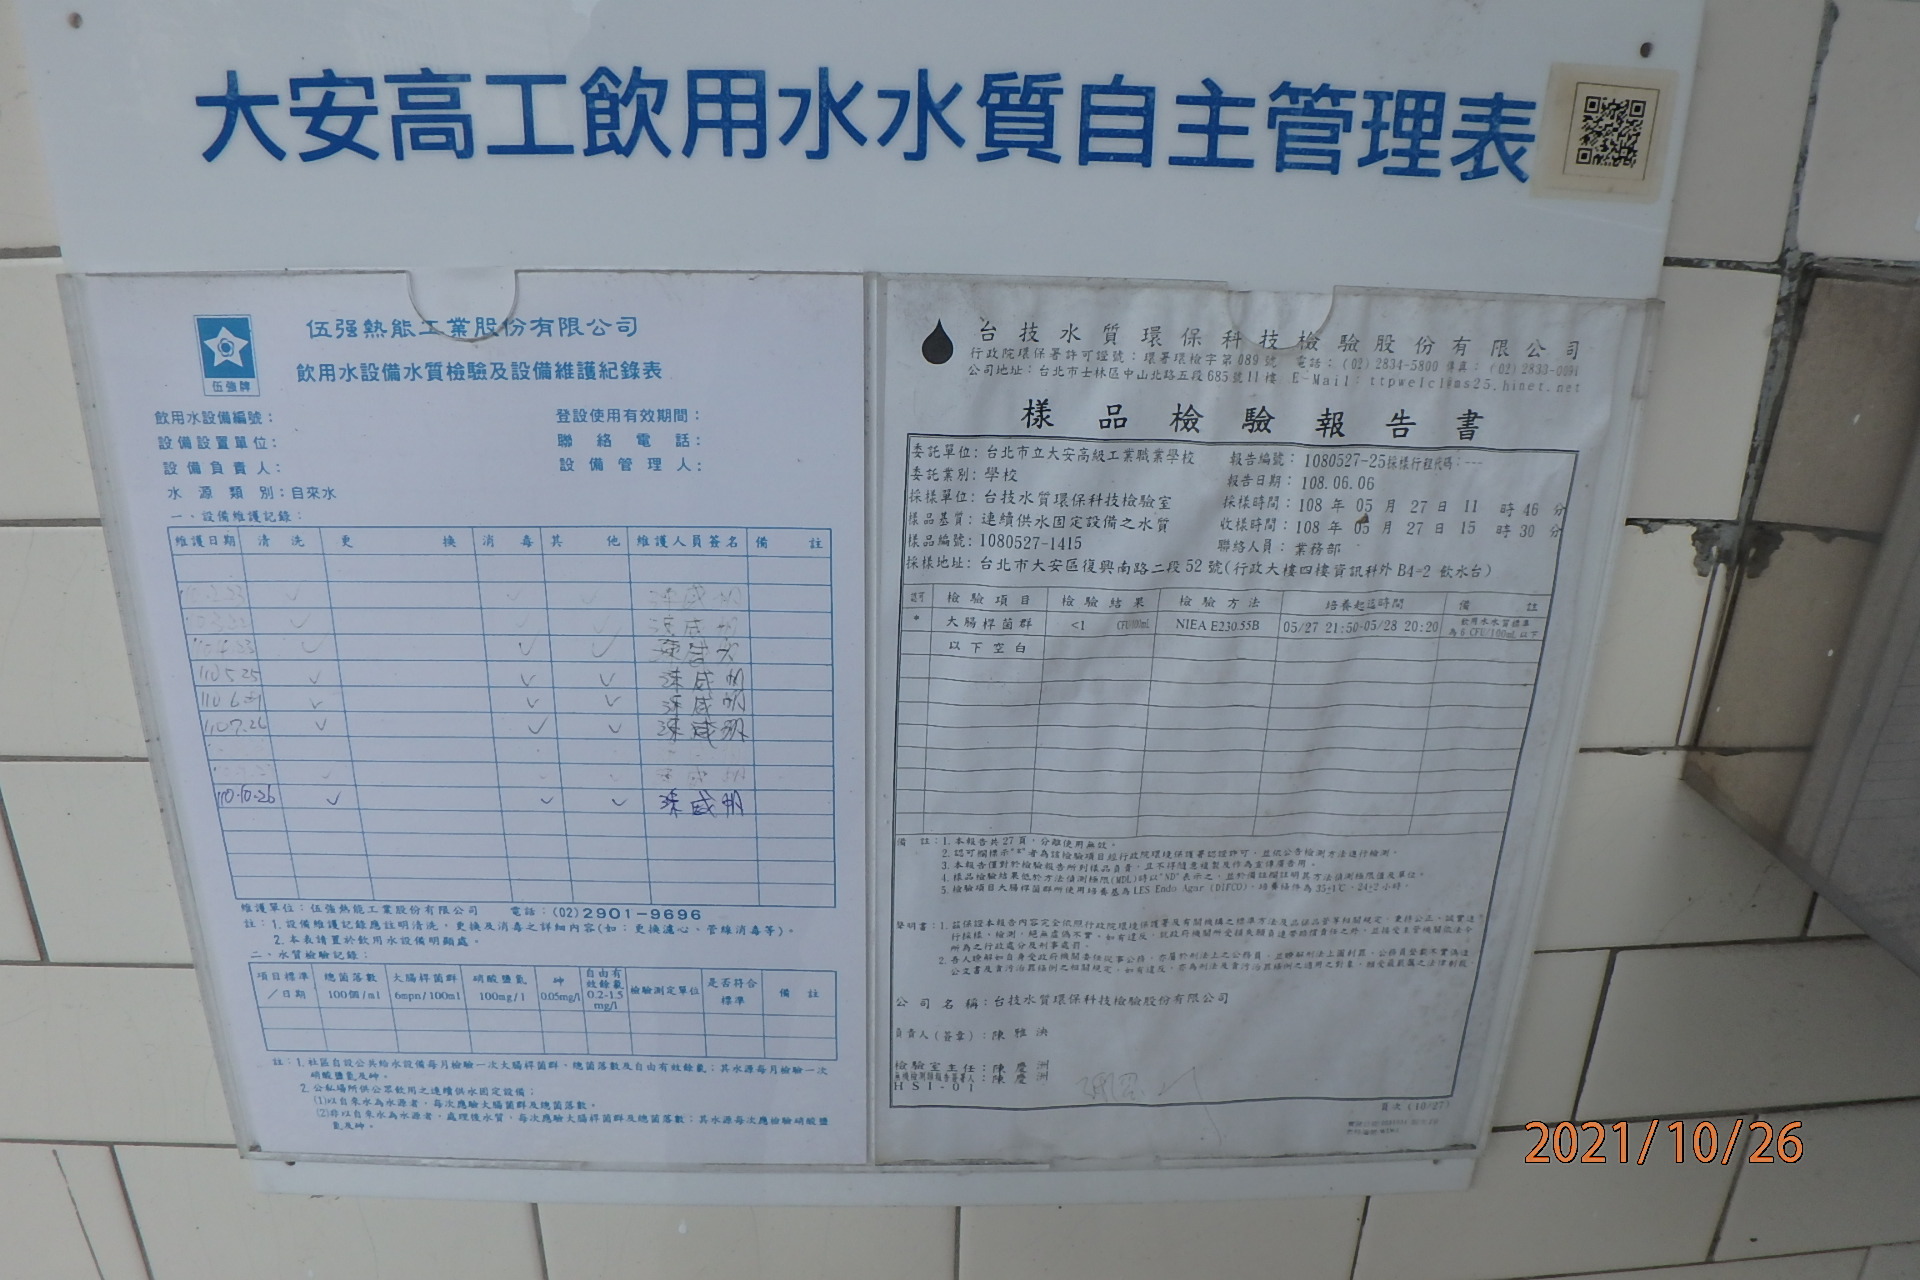 大安高工飲用水水質自主管理表
伍強牌
伍强熱能工業股份有限公司
飲用水設備水質檢驗及設備維護紀錄表
飲用水設備編號：
登設使用有效期間：
設備設置單位：
聯絡電話：
設備負責人：
設備管理人：
水源類別：自來水
一、設備維護記錄：
維護日期 清洗 更換 消毒 其他 維護人員簽名 備註
110.5.25 ✓ ✓ ✓
110.7.26 ✓ ✓ ✓
110.10.26 ✓ ✓ ✓
維護單位：伍強熱能工業股份有限公司 電話：(02)2901-9696
註：1. 設備維護記錄應註明清洗，更換及消毒之詳細內容(如：更換濾心、管線消毒等)。
2. 本表請置於飲用水設備明顯處。
二、水質檢驗記錄：
項目標準／日期 總菌落數 100個/ml 大腸桿菌群 6mpn/100ml 硝酸鹽氮 100mg/l 砷 0.05mg/l 自由有效餘氯 0.2-1.5 mg/l 檢驗測定單位 是否符合標準 備註
註：1. 社區自設公共給水設備每月檢驗一次大腸桿菌群、總菌落數及自由有效餘氯；其水源每月檢驗一次
硝酸鹽氮及砷。
2. 公私場所供公眾飲用之連續供水固定設備：
(1)以自來水為水源者，每次應驗大腸桿菌群及總菌落數。
(2)非以自來水為水源者，處理後水質，每次應驗大腸桿菌群及總菌落數；其水源每次應檢驗硝酸鹽
氮及砷。
台技水質環保科技檢驗股份有限公司
行政院環保署許可證號：環署環檢字第089號 電話：(02)2834-5800 傳真：(02)2833-0091
公司地址：台北市士林區中山北路五段685號11樓 E-Mail：ttpwelcl@ms25.hinet.net
樣品檢驗報告書
委託單位：台北市立大安高級工業職業學校
報告編號：1080527-25採樣行程代碼：---
委託業別：學校
報告日期：108.06.06
採樣單位：台技水質環保科技檢驗室
採樣時間：108 年 05 月 27 日 11 時 46 分
樣品基質：連續供水固定設備之水質
收樣時間：108 年 05 月 27 日 15 時 30 分
樣品編號：1080527-1415
聯絡人員：業務部
採樣地址：台北市大安區復興南路二段52號(行政大樓四樓資訊科外 B4=2 飲水台)
認可 檢驗項目 檢驗結果 檢驗方法 培養起迄時間 備註
* 大腸桿菌群 <1 CFU/100mL NIEA E230.55B 05/27 21:50-05/28 20:20 飲用水水質標準為6 CFU/100mL以下
以下空白
備註：1. 本報告共27頁，分離使用無效。
2. 認可欄標示"*"者為該檢驗項目經行政院環境保護署認證許可，並依公告檢測方法進行檢測。
3. 本報告僅對於檢驗報告所列樣品負責，且不得隨意複製及作為宣傳廣告用。
4. 樣品檢驗結果低於方法偵測極限(MDL)時以"ND"表示之，並於備註欄註明其方法偵測極限值及單位。
5. 檢驗項目大腸桿菌群所使用培養基為LES Endo Agar (DIFCO)，培養條件為35±1℃，24±2小時。
聲明書：1. 茲保證本報告內容完全依照行政院環境保護署及有關機構之標準方法及品保品管等相關規定，秉持公正、誠實進
行採樣、檢測，絕無虛偽不實。
公司名稱：台技水質環保科技檢驗股份有限公司
負責人(簽章)：陳雅泱
檢驗室主任：陳慶洲
陳慶洲
HSI-01
頁次 (10/27)
2021/10/26